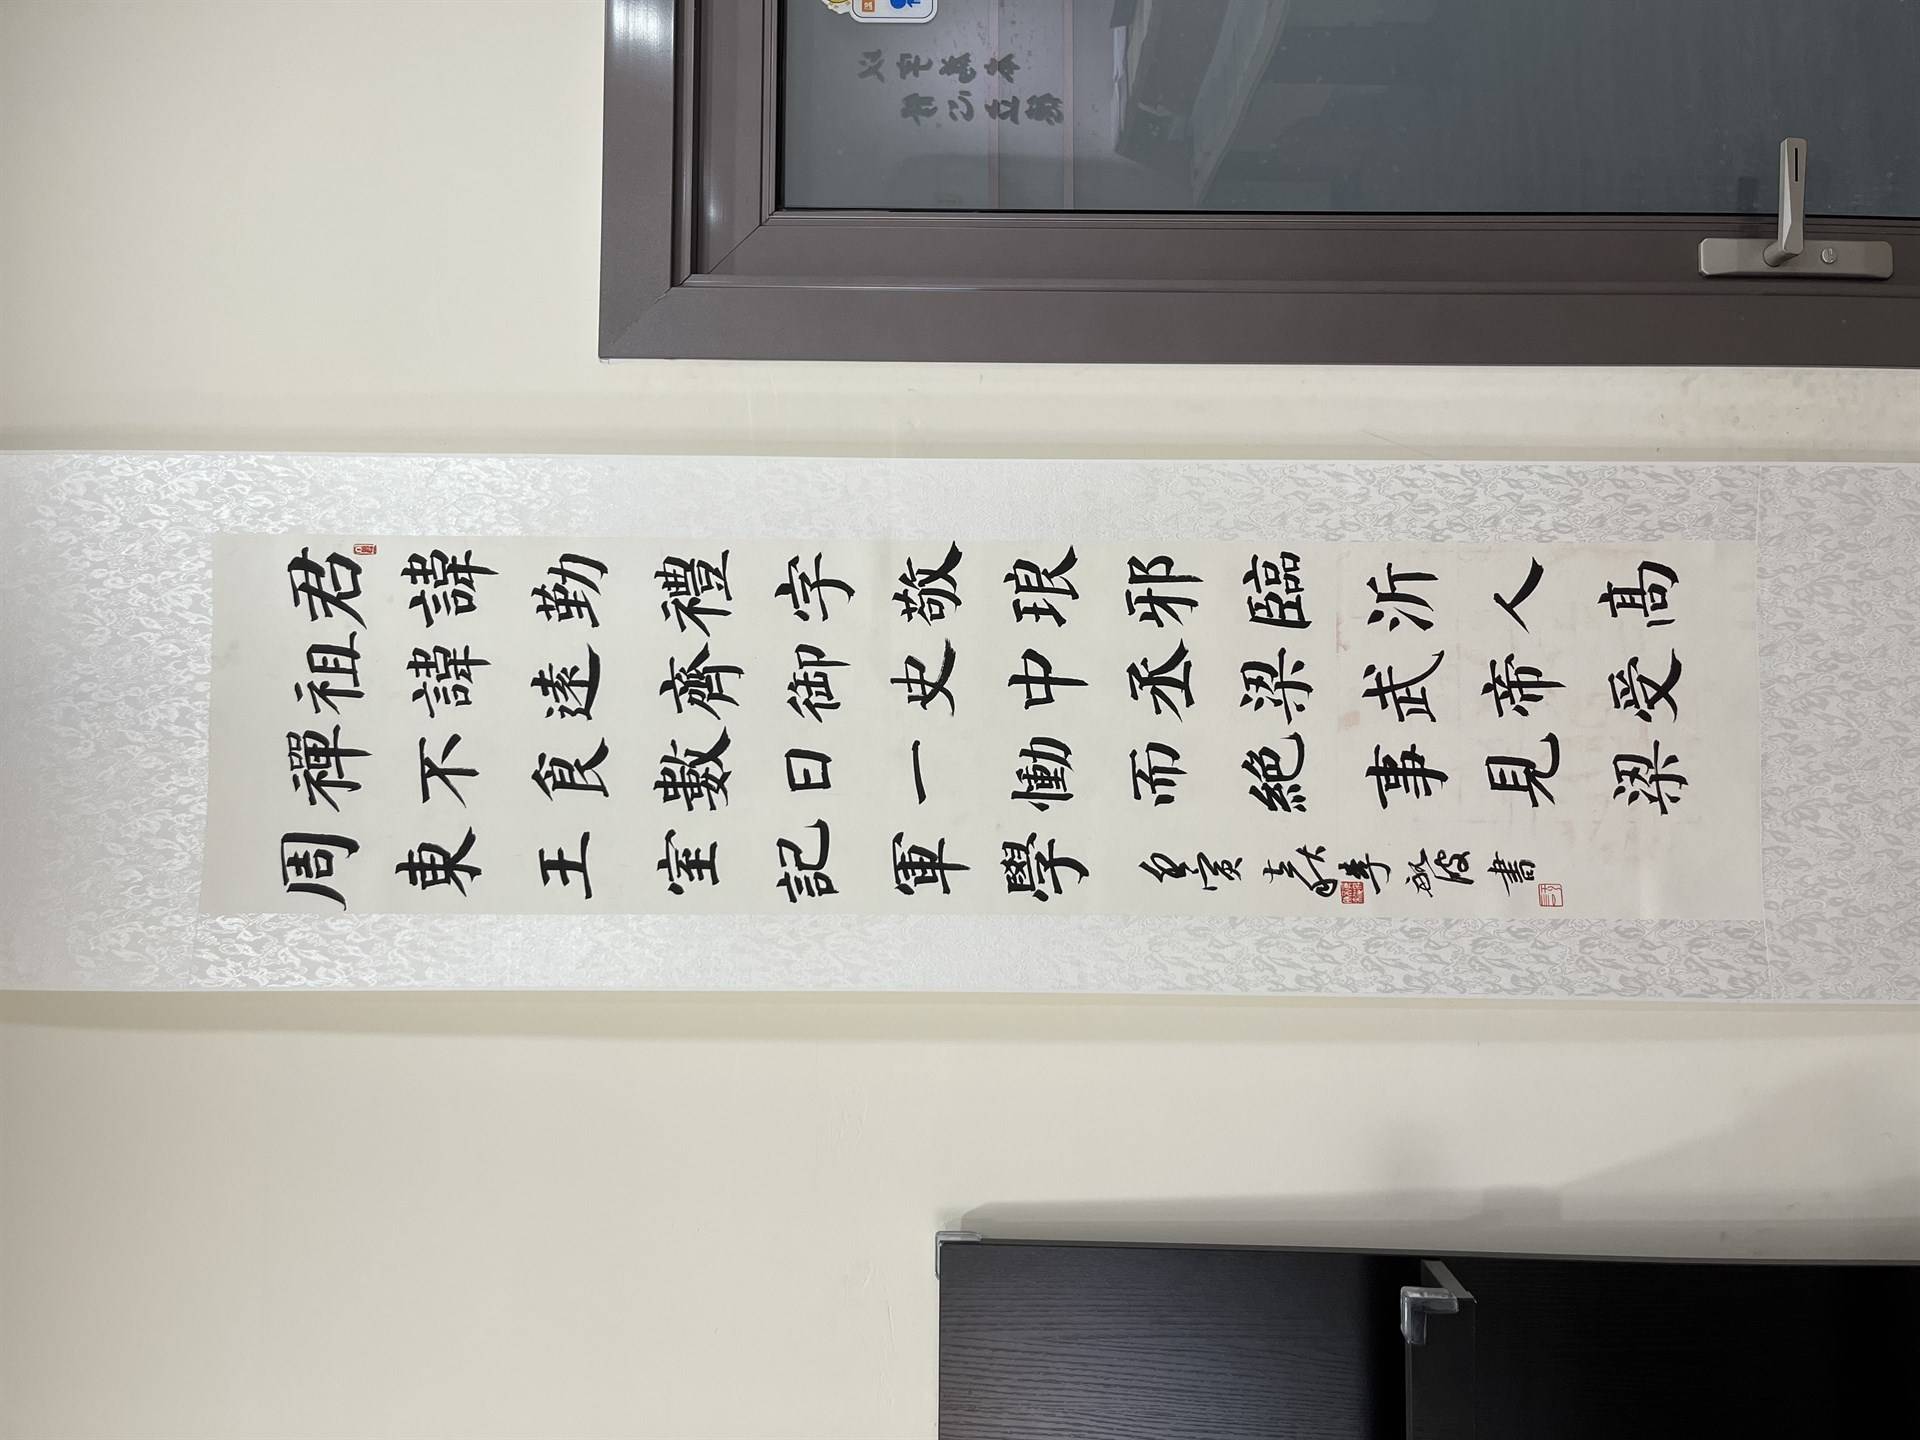 君諱勤禮字敬琅邪臨沂人高
祖諱遠齊御史中丞梁武帝受
禪不食數日一慟而絶事見梁
周東王室記軍學
壬寅 李 書